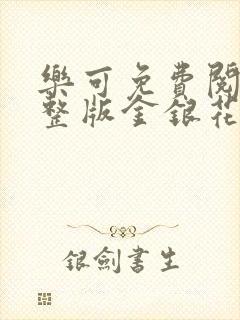 樂可免費閱
整版金銀花
銀劍書生